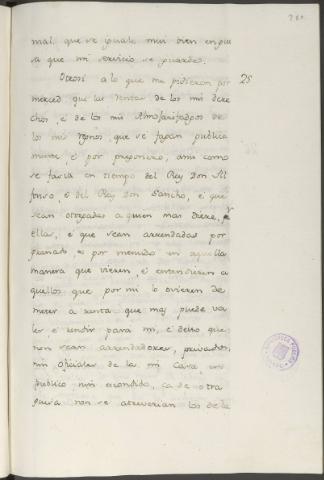 mas, que se guarde mui bien en gui
sa que mi servicio se guarde.
Otrosi a lo que me pidieron por 25
merced que las rentas de los mis dere
chos, e de los mis Almoxarifadgos de
los mis regnos, que se fagan publica
mente, e por pregonero, ansi como
se facia en tiempo del Rey Don Al
fonso, e del Rey Don Sancho, e que
sean otorgadas a quien mas diere por
ellas, e que sean arrendadas por
granado, o por menudo en aquella
manera que vieren, e entendieren a
quellos que por mi lo ovieren de
meter a renta que mas puede va
ler e rendir para mi, e desto que
non sean arrendadores, privados,
nin oficiales de la mi Casa, en
publico nin escondido, ca de otra
guisa non se atreverian los de la